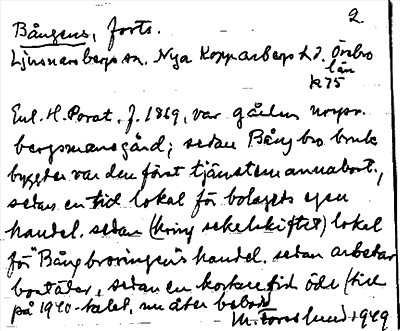 2
Bångens, forts.
Ljusnarsbergs sn. Nya Kopparbergs hd. Örebro
län
K75
Enl. H. Porat, f. 1869, var gården urspr.
bergsmansgård; sedan Bångbro bruk
byggdes var den först tjänstemannabost.,
sedan en tid lokal för bolagets egen
handel, sedan (kring sekelskiftet) lokal
för "Bångbroringens" handel, sedan arbetar
bostäder, sedan en kortare tid öde (till
på 1940-talet, nu åter bebodd
M. Forsslund 1949